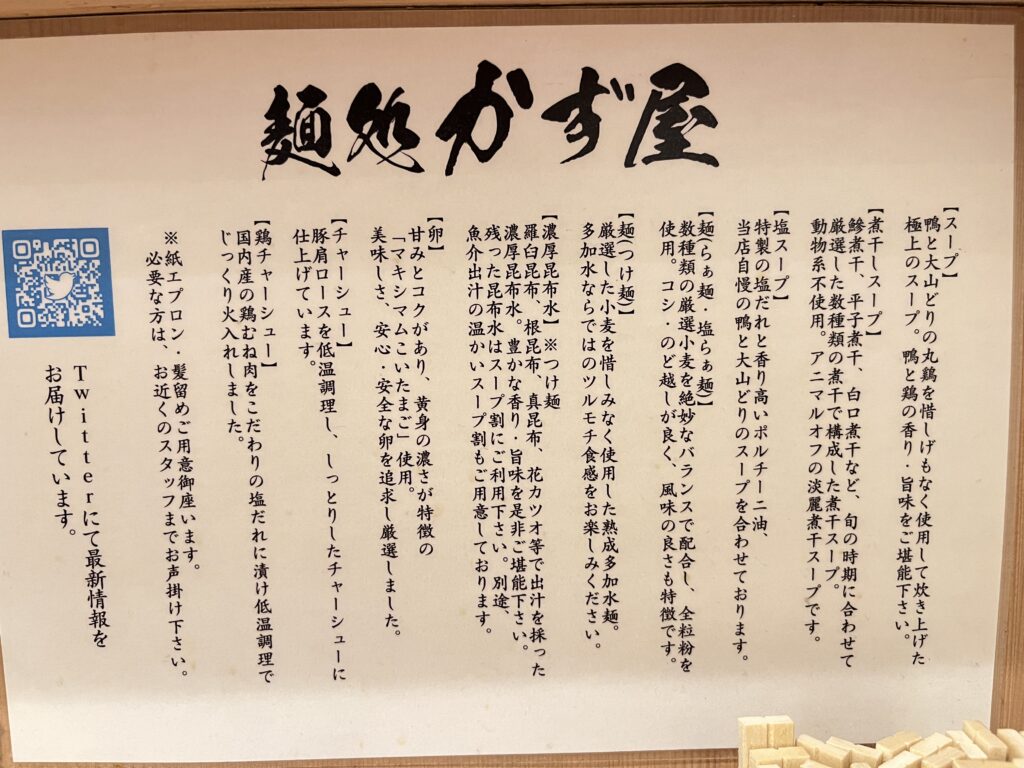 麺処かず屋
【スープ】
鴨と大山どりの丸鶏を惜しげもなく使用して炊き上げた
極上のスープ。鴨と鶏の香り・旨味をご堪能下さい。
【煮干しスープ】
鯵煮干、平子煮干、白口煮干など、旬の時期に合わせて
厳選した数種類の煮干で構成した煮干スープ。
動物系不使用。アニマルオフの淡麗煮干スープです。
【塩スープ】
特製の塩だれと香り高いポルチーニ油、
当店自慢の鴨と大山どりのスープを合わせております。
【麺(らぁ麺・塩らぁ麺)】
数種類の厳選小麦を絶妙なバランスで配合し、全粒粉を
使用。コシ・のど越しが良く、風味の良さも特徴です。
【麺(つけ麺)】
厳選した小麦を惜しみなく使用した熟成多加水麺。
多加水ならではのツルモチ食感をお楽しみください。
【濃厚昆布水】※つけ麺
羅臼昆布、根昆布、真昆布、花カツオ等で出汁を採った
濃厚昆布水。豊かな香り・旨味を是非ご堪能下さい。
残った昆布水はスープ割にご利用下さい。別途、
魚介出汁の温かいスープ割もご用意しております。
【卵】
甘みとコクがあり、黄身の濃さが特徴の
「マキシマムこいたまご」使用。
美味しさ、安心・安全な卵を追求し厳選しました。
【チャーシュー】
豚肩ロースを低温調理し、しっとりしたチャーシューに
仕上げています。
【鶏チャーシュー】
国内産の鶏むね肉をこだわりの塩だれに漬け低温調理で
じっくり火入れしました。
※紙エプロン・髪留めご用意御座います。
必要な方は、お近くのスタッフまでお声掛け下さい。
Twitterにて最新情報を
お届けしています。